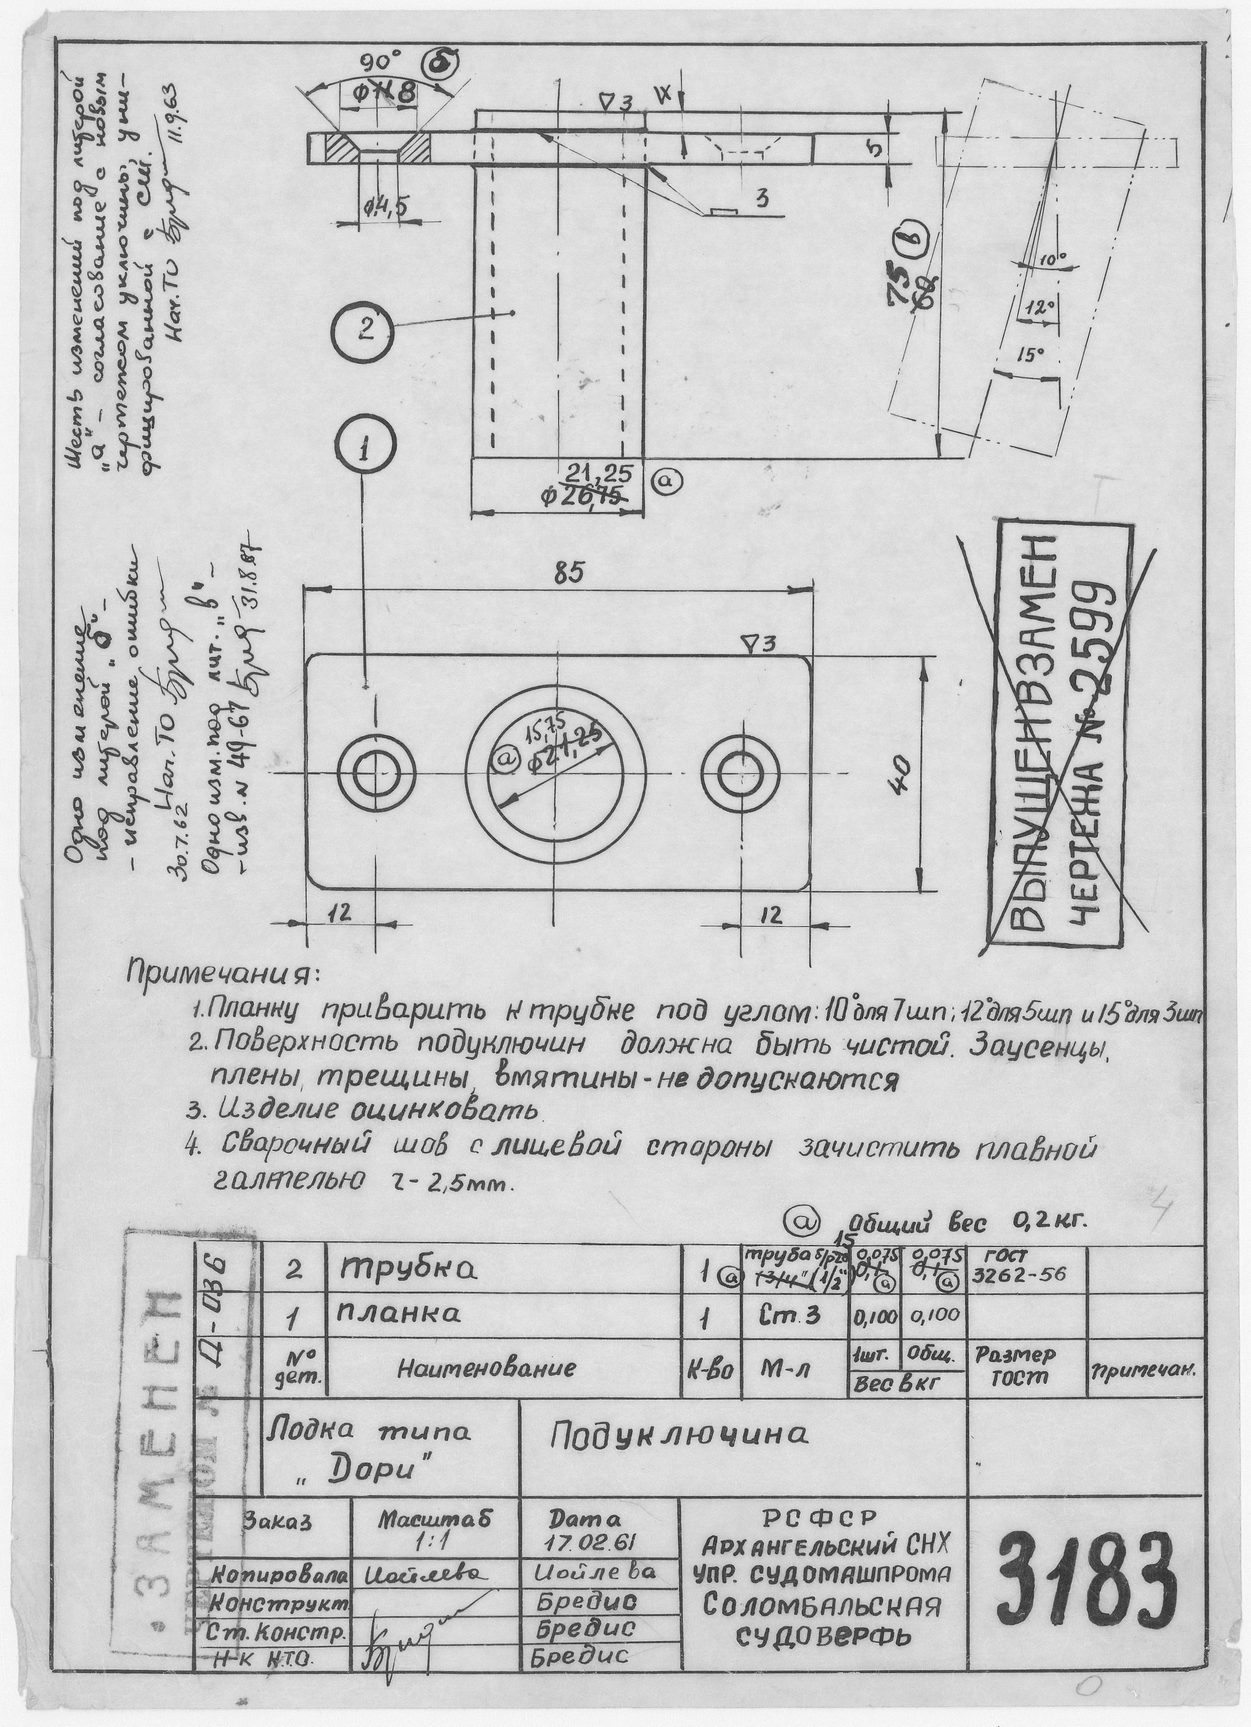 90° б
ф 11 8
▽3
4
5
ф4,5
3
75 в
60
10°
12°
15°
2
1
21,25
ф26,75 а
Шесть изменений под литерой
„а" – согласование с новым
чертежом уключины, уни-
фицированной с СШ.
Нач. ТО 11.9.63
Одно изменение
под литерой „б" –
– исправление ошибки
30.7.62 Нач. ТО
Одно изм. под лит. „в" –
– изв. № 49-67 31.8.87
85
▽3
15,75
а ф21,25
40
12
12
ВЫПУЩЕН ВЗАМЕН
ЧЕРТЕЖА № 2599
Примечания:
1. Планку приварить к трубке под углом: 10° для 7шп; 12° для 5шп и 15° для 3шп
2. Поверхность подуключин должна быть чистой. Заусенцы,
плены, трещины, вмятины - не допускаются
3. Изделие оцинковать
4. Сварочный шов с лицевой стороны зачистить плавной
галтелью r - 2,5мм.
4
а Общий вес 0,2 кг.
2 Трубка 1 а труба б/р 20 15 (3/4" (1/2") 0,075 0,1 а 0,075 0,1 а ГОСТ 3262-56
1 планка 1 Ст.3 0,100 0,100
№ дет. Наименование К-во М-л 1шт. Общ. Вес в кг Размер ГОСТ Примечан.
Лодка типа
„Дори"
Подуключина
Заказ
Масштаб
1:1
Дата
17.02.61
Копировала Иойлева Иойлева
Конструкт. Бредис
Ст. Констр. Бредис
Н-к КТО. Бредис
РСФСР
Архангельский СНХ
Упр. Судомашпрома
Соломбальская
судоверфь
3183
ЗАМЕНЕН
ЧЕРТЕЖОМ № Д-036
0